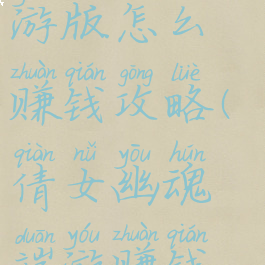 游版怎么
zhuàn qián gōng lüè
赚钱攻略(
qiàn nǚ yōu hún
倩女幽魂
duān yóu zhuàn qián
端游赚钱